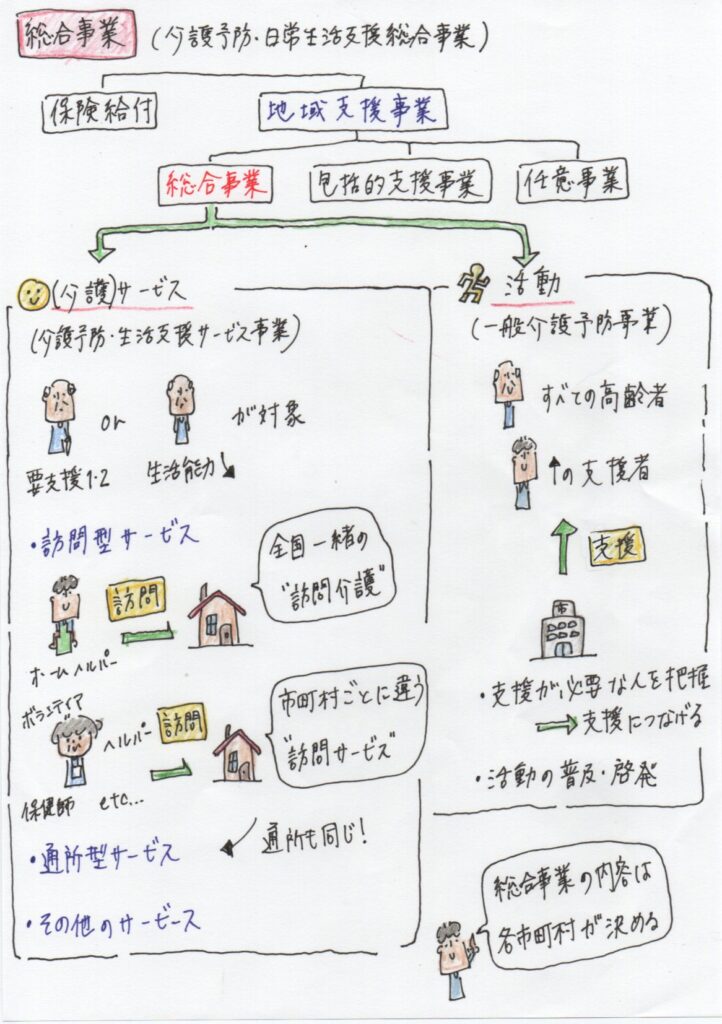 総合事業 (介護予防・日常生活支援総合事業)
保険給付 地域支援事業
総合事業 包括的支援事業 任意事業
(介護)サービス
(介護予防・生活支援サービス事業)
or が対象
要支援1・2 生活能力↘
・訪問型サービス
訪問
ホームヘルパー
全国一緒の
"訪問介護"
ボランティア
ヘルパー 訪問
保健師 etc...
市町村ごとに違う
"訪問サービス"
・通所型サービス
通所も同じ!
・その他のサービース
活動
(一般介護予防事業)
すべての高齢者
↑の支援者
支援
市
・支援が必要な人を把握
→支援につなげる
・活動の普及・啓発
総合事業の内容は
各市町村が決める